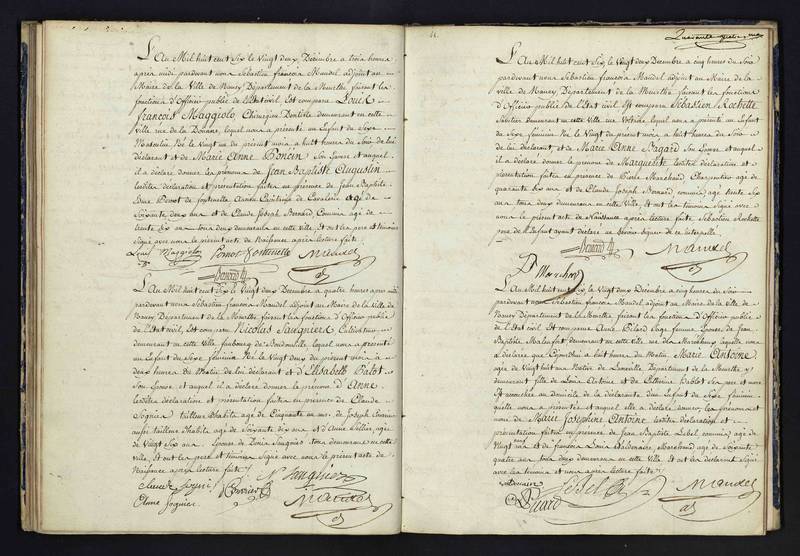 L'An Mil huit cent Six le Vingt deux Décembre à trois heures
après midi pardevant nous Sébastien françois Mandel adjoint au
Maire de la Ville de Nancy Département de la Meurthe faisant les
fonctions d'Officier public de l'Etat civil Est comparu Louis
françois Maggiolo, Chirurgien Dentiste demeurant en cette
Ville rue de la Douane, lequel nous a présenté un Enfant du Sexe
Masculin Né le Vingt du présent mois à huit heures du Soir de lui
déclarant et de Marie Anne Poncin Son Epouse et auquel
il a déclaré donner les prénoms de Jean Baptiste Augustin
lesdites déclaration et présentation faites en présence de Jean Baptiste
Ancien Capitaine de Cavalerie agé de
Soixante deux ans et de Claude Joseph Bernard Commis agé de
trente Six ans tous deux demeurants en cette Ville. Et ont les père et témoins
Signé avec nous le présent acte de Naissance après lecture faite
Louis Maggiolo
Bernard
Mandel
L'An Mil huit cent Six le Vingt deux Décembre à quatre heures après midi
pardevant nous Sébastien françois Mandel adjoint au Maire de la Ville de
Nancy Département de la Meurthe faisant les fonctions d'Officier public
de l'Etat civil, Est comparu Nicolas Saugnier Cultivateur
demeurant en cette Ville faubourg de Boudonville lequel nous a présenté
un Enfant du Sexe féminin Né le Vingt deux du présent mois à
deux heures du Matin de lui déclarant et d'Elisabeth Balot
Son Epouse, et auquel il a déclaré donner le prénom d'Anne
lesdites déclaration et présentation faites en présence de Claude
Sognier tailleur d'habits agé de Cinquante un ans, de Joseph
aussi tailleur d'habits agé de Soixante dix ans et d'Anne
de Vingt Six ans Epouse de Saugnier tous demeurants en cette
Ville, Et ont les père et témoins Signé avec nous le présent acte de
Naissance après lecture faite
Claude Sogni
Mandel
Anne Sognier
L'An Mil huit cent Six le Vingt deux Décembre à cinq heures du Soir
pardevant nous Sébastien françois Mandel adjoint au Maire de la
Ville de Nancy, Département de la Meurthe faisant les fonctions
d'Officier public de l'Etat civil Est comparu Sébastien Rochette
Sabotier demeurant en cette Ville rue lequel nous a présenté un Enfant
du Sexe féminin Né le Vingt du présent mois à huit heures du Soir
de lui déclarant, et de Marie Anne Bagard Son Epouse, et auquel
il a déclaré donner le prénom de Marguerite lesdites déclaration et
présentation faites en présence de Marchand Charpentier agé de
quarante Six ans et de Claude Joseph Bernard commis agé trente Six
ans, tous deux demeurants en cette Ville, Et ont les témoins Signé avec
nous le présent acte de Naissance après lecture faite Sébastien Rochette
père de l'Enfant ayant déclaré ne Savoir Signer de ce interpellé
Bernard
Mandel
Marchand
L'An Mil huit cent Six le Vingt deux Décembre à cinq heures du Soir
pardevant nous Sébastien françois Mandel adjoint au Maire de la Ville de
Nancy Département de la Meurthe faisant les fonctions d'Officier public
de l'Etat civil Est comparue Anne Sage femme Epouse de Jean
Baptiste demeurant en cette Ville rue laquelle nous
a déclaré que aujourd'hui à huit heures du Matin Marie Antoine
agée de Vingt huit ans Native de Lunéville Département de la Meurthe y
demeurant fille de Louis Antoine et de Catherine Ses père et mère
Est accouchée au domicile de la déclarante d'un Enfant du Sexe féminin
quelle nous a présenté et auquel elle a déclaré donner les prénoms et
nom de Marie Josephine Antoine lesdites déclaration et
présentation faites en présence de Jean Baptiste Lebel commis agé de
Vingt ans et de Marchand agé de Soixante
quatre ans tous deux demeurants en cette Ville. Et ont les déclarante Signé
avec les témoins et nous après lecture faite
Lebel
Mandel